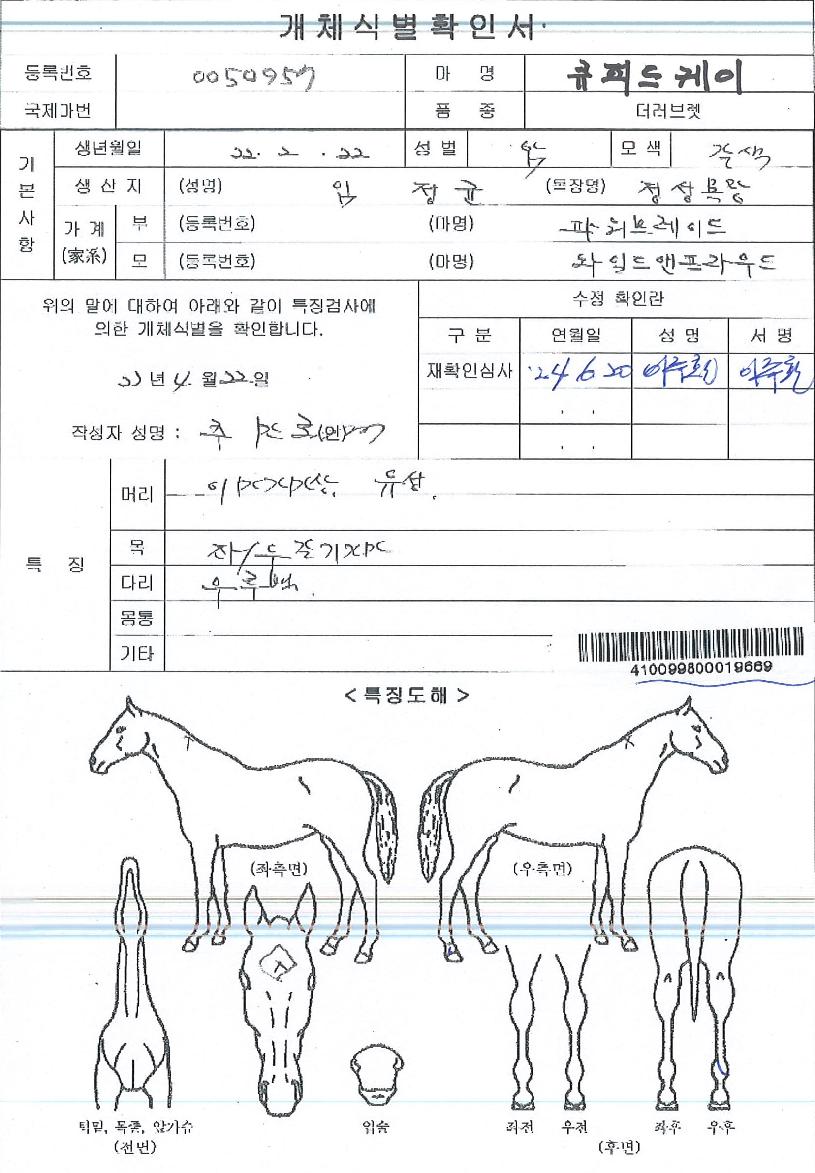 개체식별확인서
등록번호 0050957 마 명 큐피드케이
국제마번 품 종 더러브렛
기본사항
생년월일 22. 2. 22 성 별 암 모 색 갈색
생 산 지 (성명) 임 정 균 (목장명) 정성목장
가 계 (家系)
부 (등록번호) (마명) 파워브레이드
모 (등록번호) (마명) 와일드앤프라우드
위의 말에 대하여 아래와 같이 특징검사에
의한 개체식별을 확인합니다.
22년 4. 월 22. 일
작성자 성명 : (인)
수정 확인란
구 분 연월일 성 명 서 명
재확인심사 '24 6 20
. .
. .
특 징
머리 유성.
목 좌/우
다리
몸통
기타
410099800019669
<특징도해>
(좌측면) (우측면)
턱밑, 목종, 앞가슴 입술 좌전 우전 좌후 우후
(전면) (후면)